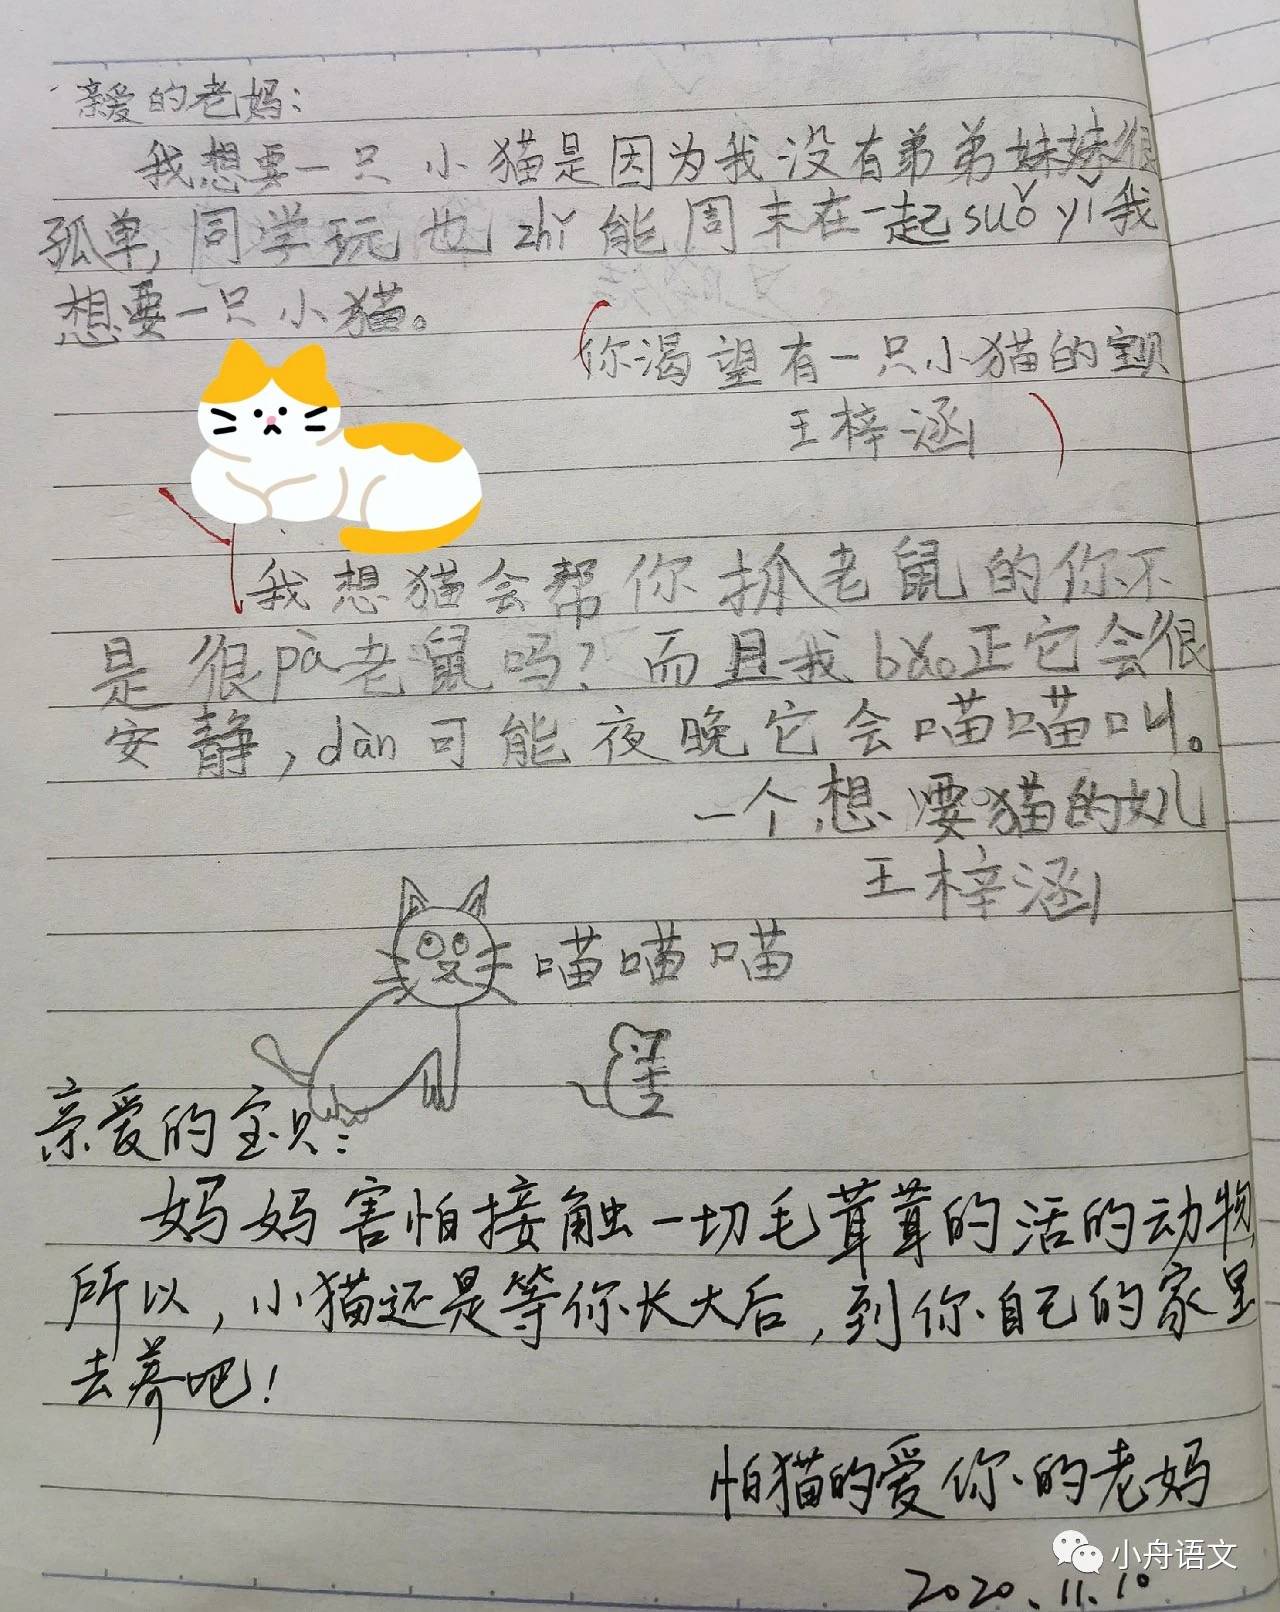 亲爱的老妈：
我想要一只小猫是因为我没有弟弟妹妹很
孤单，同学玩也zhǐ能周末在一起suǒ yǐ我
想要一只小猫。
你渴望有一只小猫的宝贝
王梓涵
我想猫会帮你抓老鼠的你不
是很pà老鼠吗？而且我bǎo正它会很
安静，dàn可能夜晚它会喵喵叫。
一个想要猫的女儿
王梓涵
喵喵喵
亲爱的宝贝：
妈妈害怕接触一切毛茸茸的活的动物
所以，小猫还是等你长大后，到你自己的家里
去养吧！
怕猫的爱你的老妈
小舟语文
2020.11.10